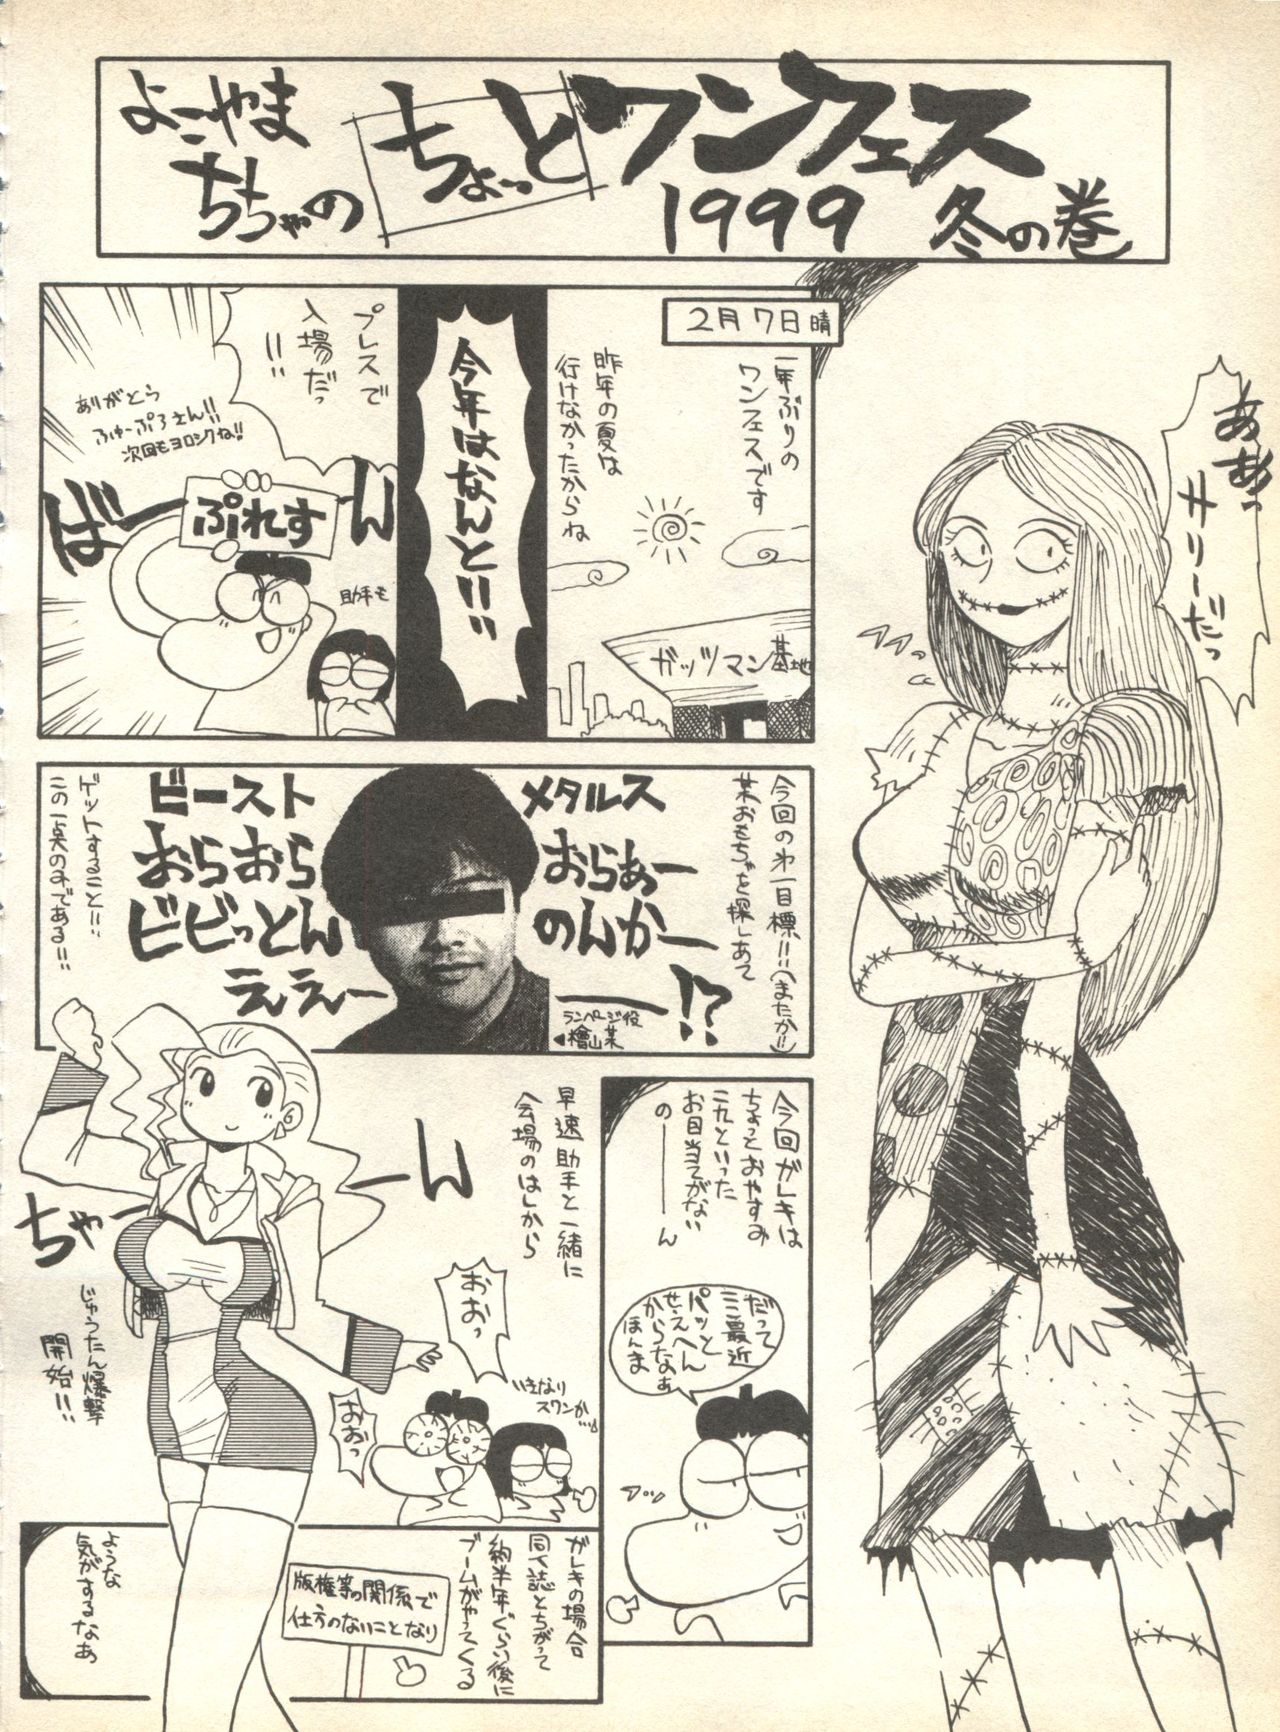 よこやま
ちちゃの
ちょっと
ワンフェス
1999 冬の巻
2月7日晴
一年ぶりの
ワンフェスです
昨年の夏は
行けなかったからね
ガッツマン基地
今年はなんと!!
プレスで
入場だっ
!!
ありがとう
ふゅーぷろさん!!
次回もヨロシクね!!
ばーん
ぷれす
助手も
ああっ
サリーだっ
今回の第一目標!!(またか!!)
某おもちゃを探しあて
メタルス
おらぁー
のんかー
ー!?
ビースト
おらおら
ビビっとん
えぇえー
ランページ役
◀檜山某
ゲットすること!!
この一点のみである!!
今回ガレキは
ちょっとおやすみ
これといった
お目当てがない
のーーーん
だって
ミミ最近
パッと
せぇへん
からなぁ
ほんま
早速助手と一緒に
会場のはしから
ちゃーーん
じゅうたん爆撃
開始!!
おおっ
おおっ
いきなり
スワンか…
ガレキの場合
同人誌とちがって
約半年ぐらい後に
ブームがやってくる
版権等の関係で
仕方のないことなり
ような
気がするなあ